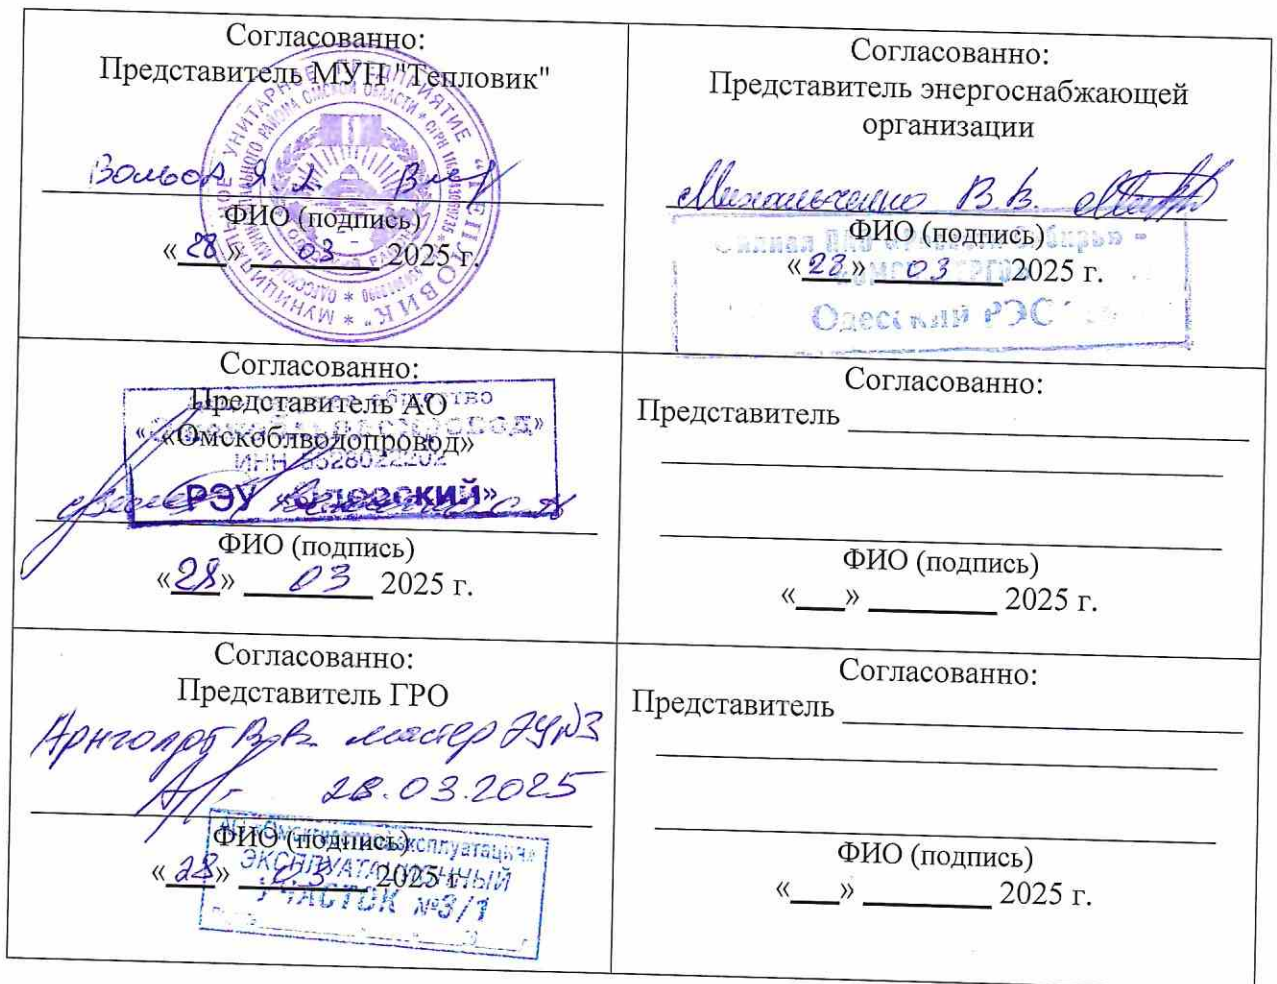 Согласованно:
Представитель МУП "Тепловик"
Вольф Я. А.
ФИО (подпись)
«28» 03 2025 г.
МУНИЦИПАЛЬНОЕ УНИТАРНОЕ ПРЕДПРИЯТИЕ "ТЕПЛОВИК"
Согласованно:
Представитель энергоснабжающей
организации
Михальченко В.В.
ФИО (подпись)
«28» 03 2025 г.
Одесский РЭС
Согласованно:
Представитель АО
«Омскоблводопровод»
ИНН 5528022202
РЭУ «Одесский»
ФИО (подпись)
«28» 03 2025 г.
Согласованно:
Представитель
ФИО (подпись)
«___» ________ 2025 г.
Согласованно:
Представитель ГРО
Арнголдт В.В. мастер ЭУ№3
28.03.2025
ФИО (подпись)
«28» 03 2025 г.
ЭКСПЛУАТАЦИОННЫЙ
УЧАСТОК №3/1
Согласованно:
Представитель
ФИО (подпись)
«___» ________ 2025 г.